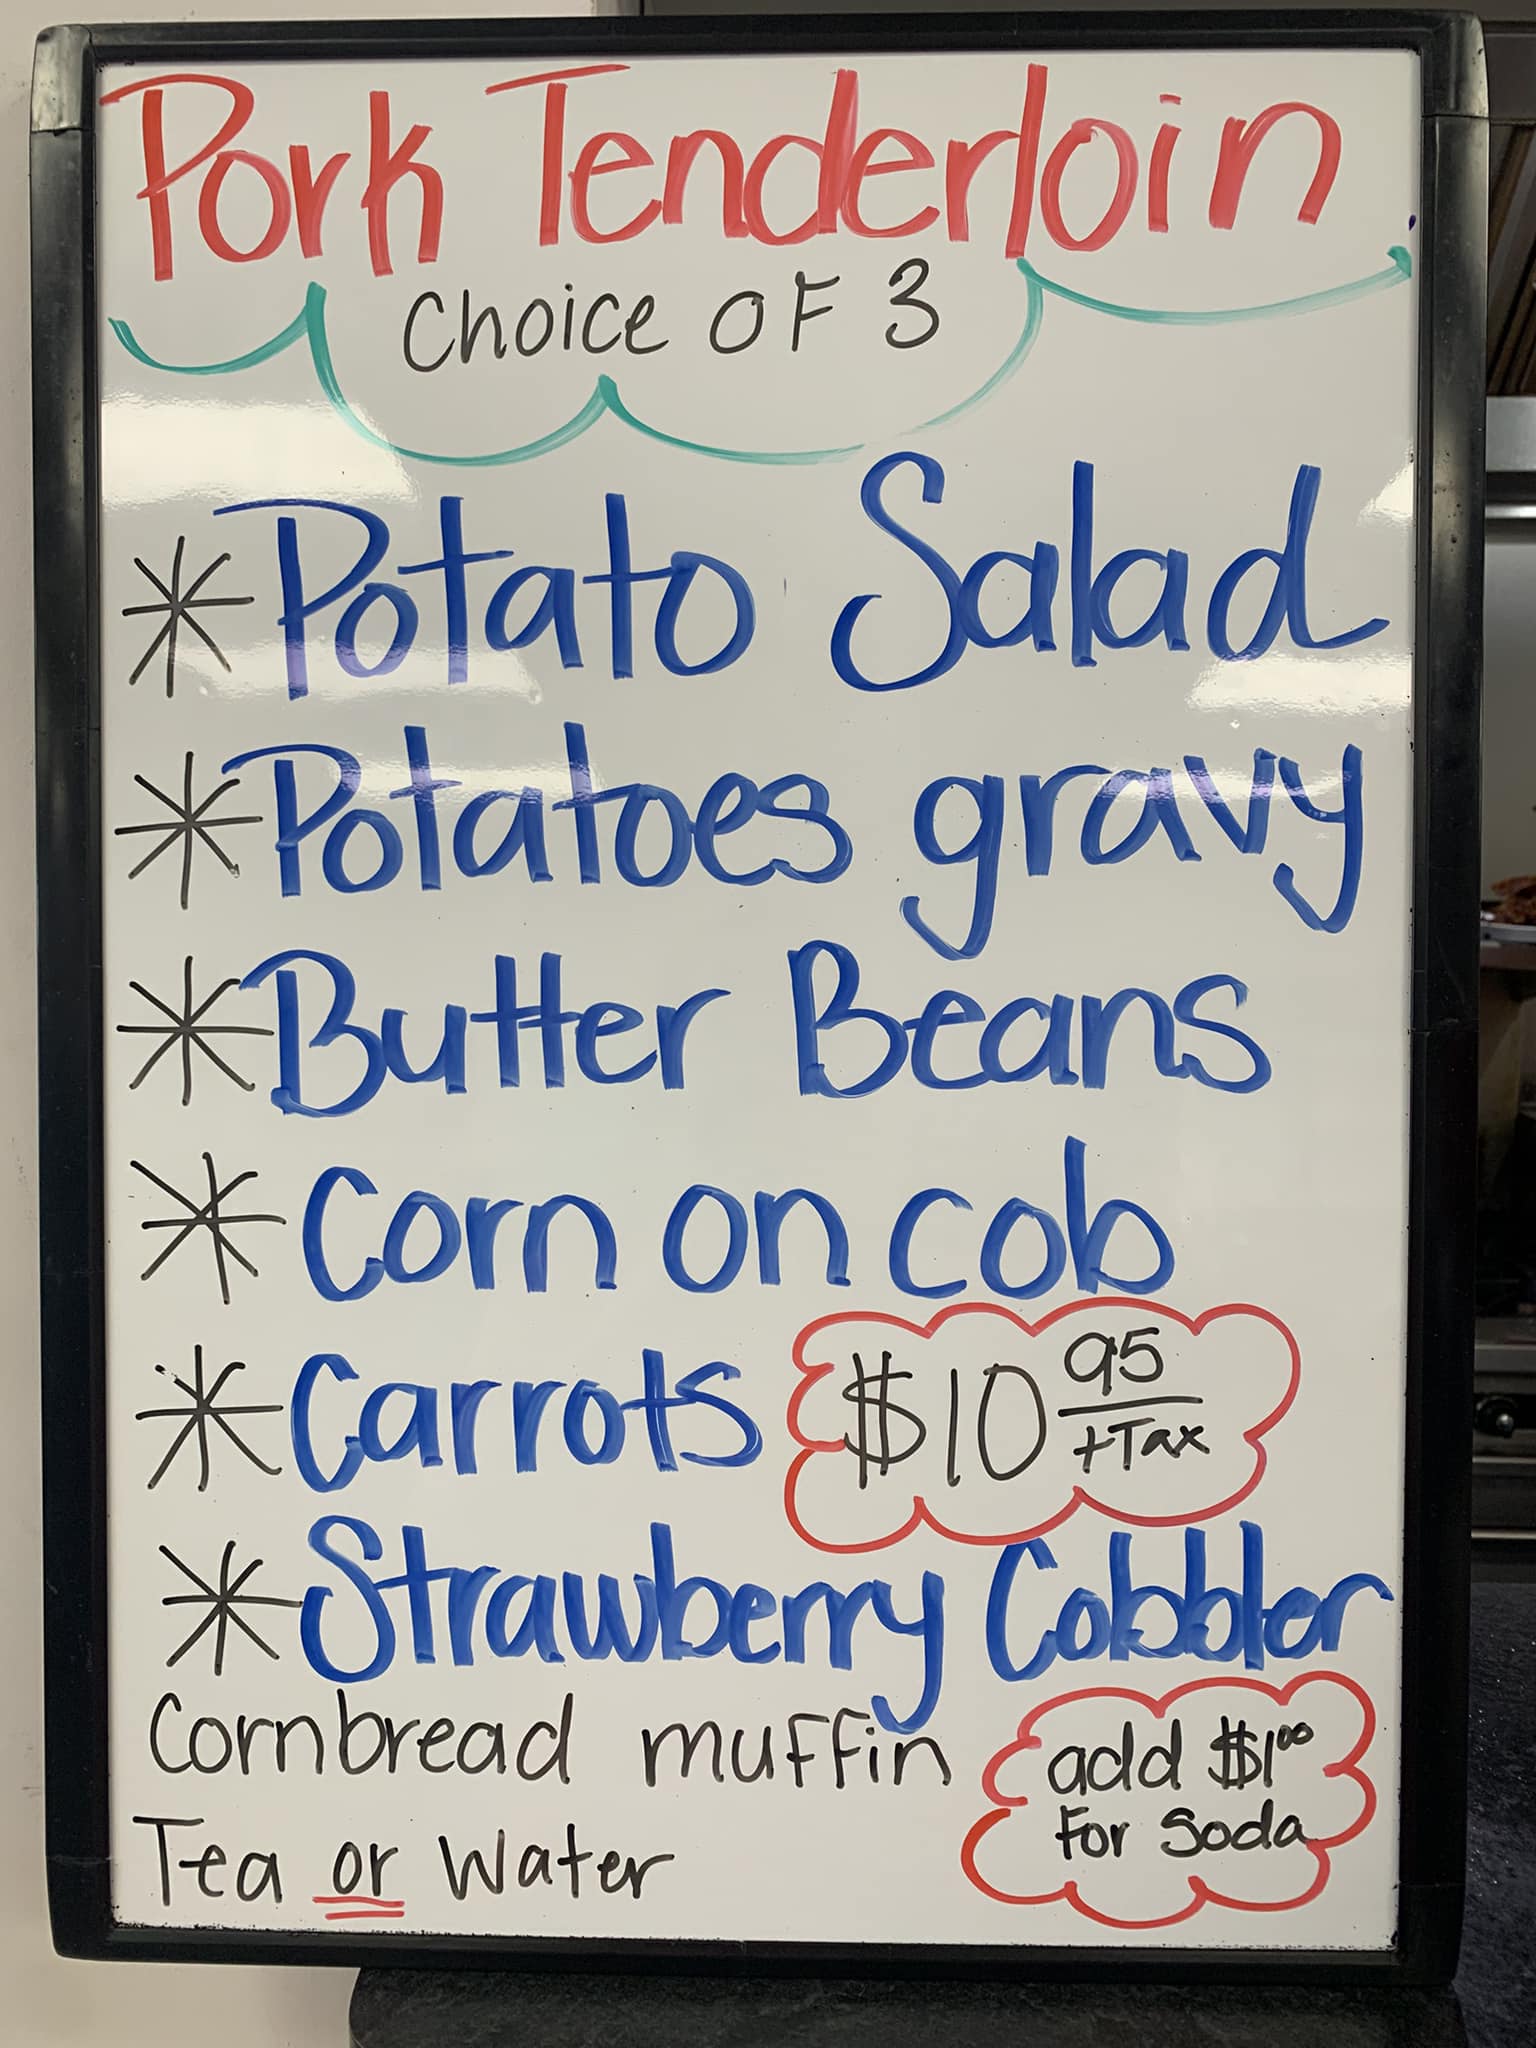 Pork Tenderloin
Choice OF 3
* Potato Salad
* Potatoes gravy
* Butter Beans
* Corn on cob
* Carrots
$10 95
+Tax
* Strawberry Cobbler
Cornbread muffin
add $1.00
For Soda
Tea or Water